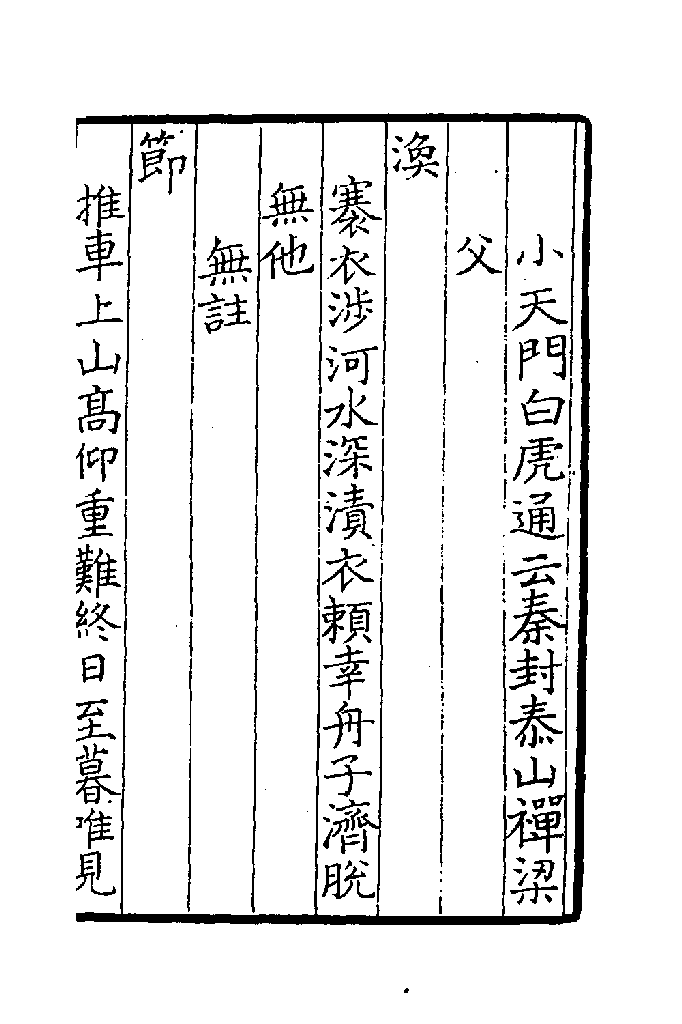 小天門白虎通云秦封泰山禪梁
父
渙
褰衣涉河水深漬衣賴幸舟子濟脫
無他
無註
節
推車上山髙仰重難終日至暮唯見